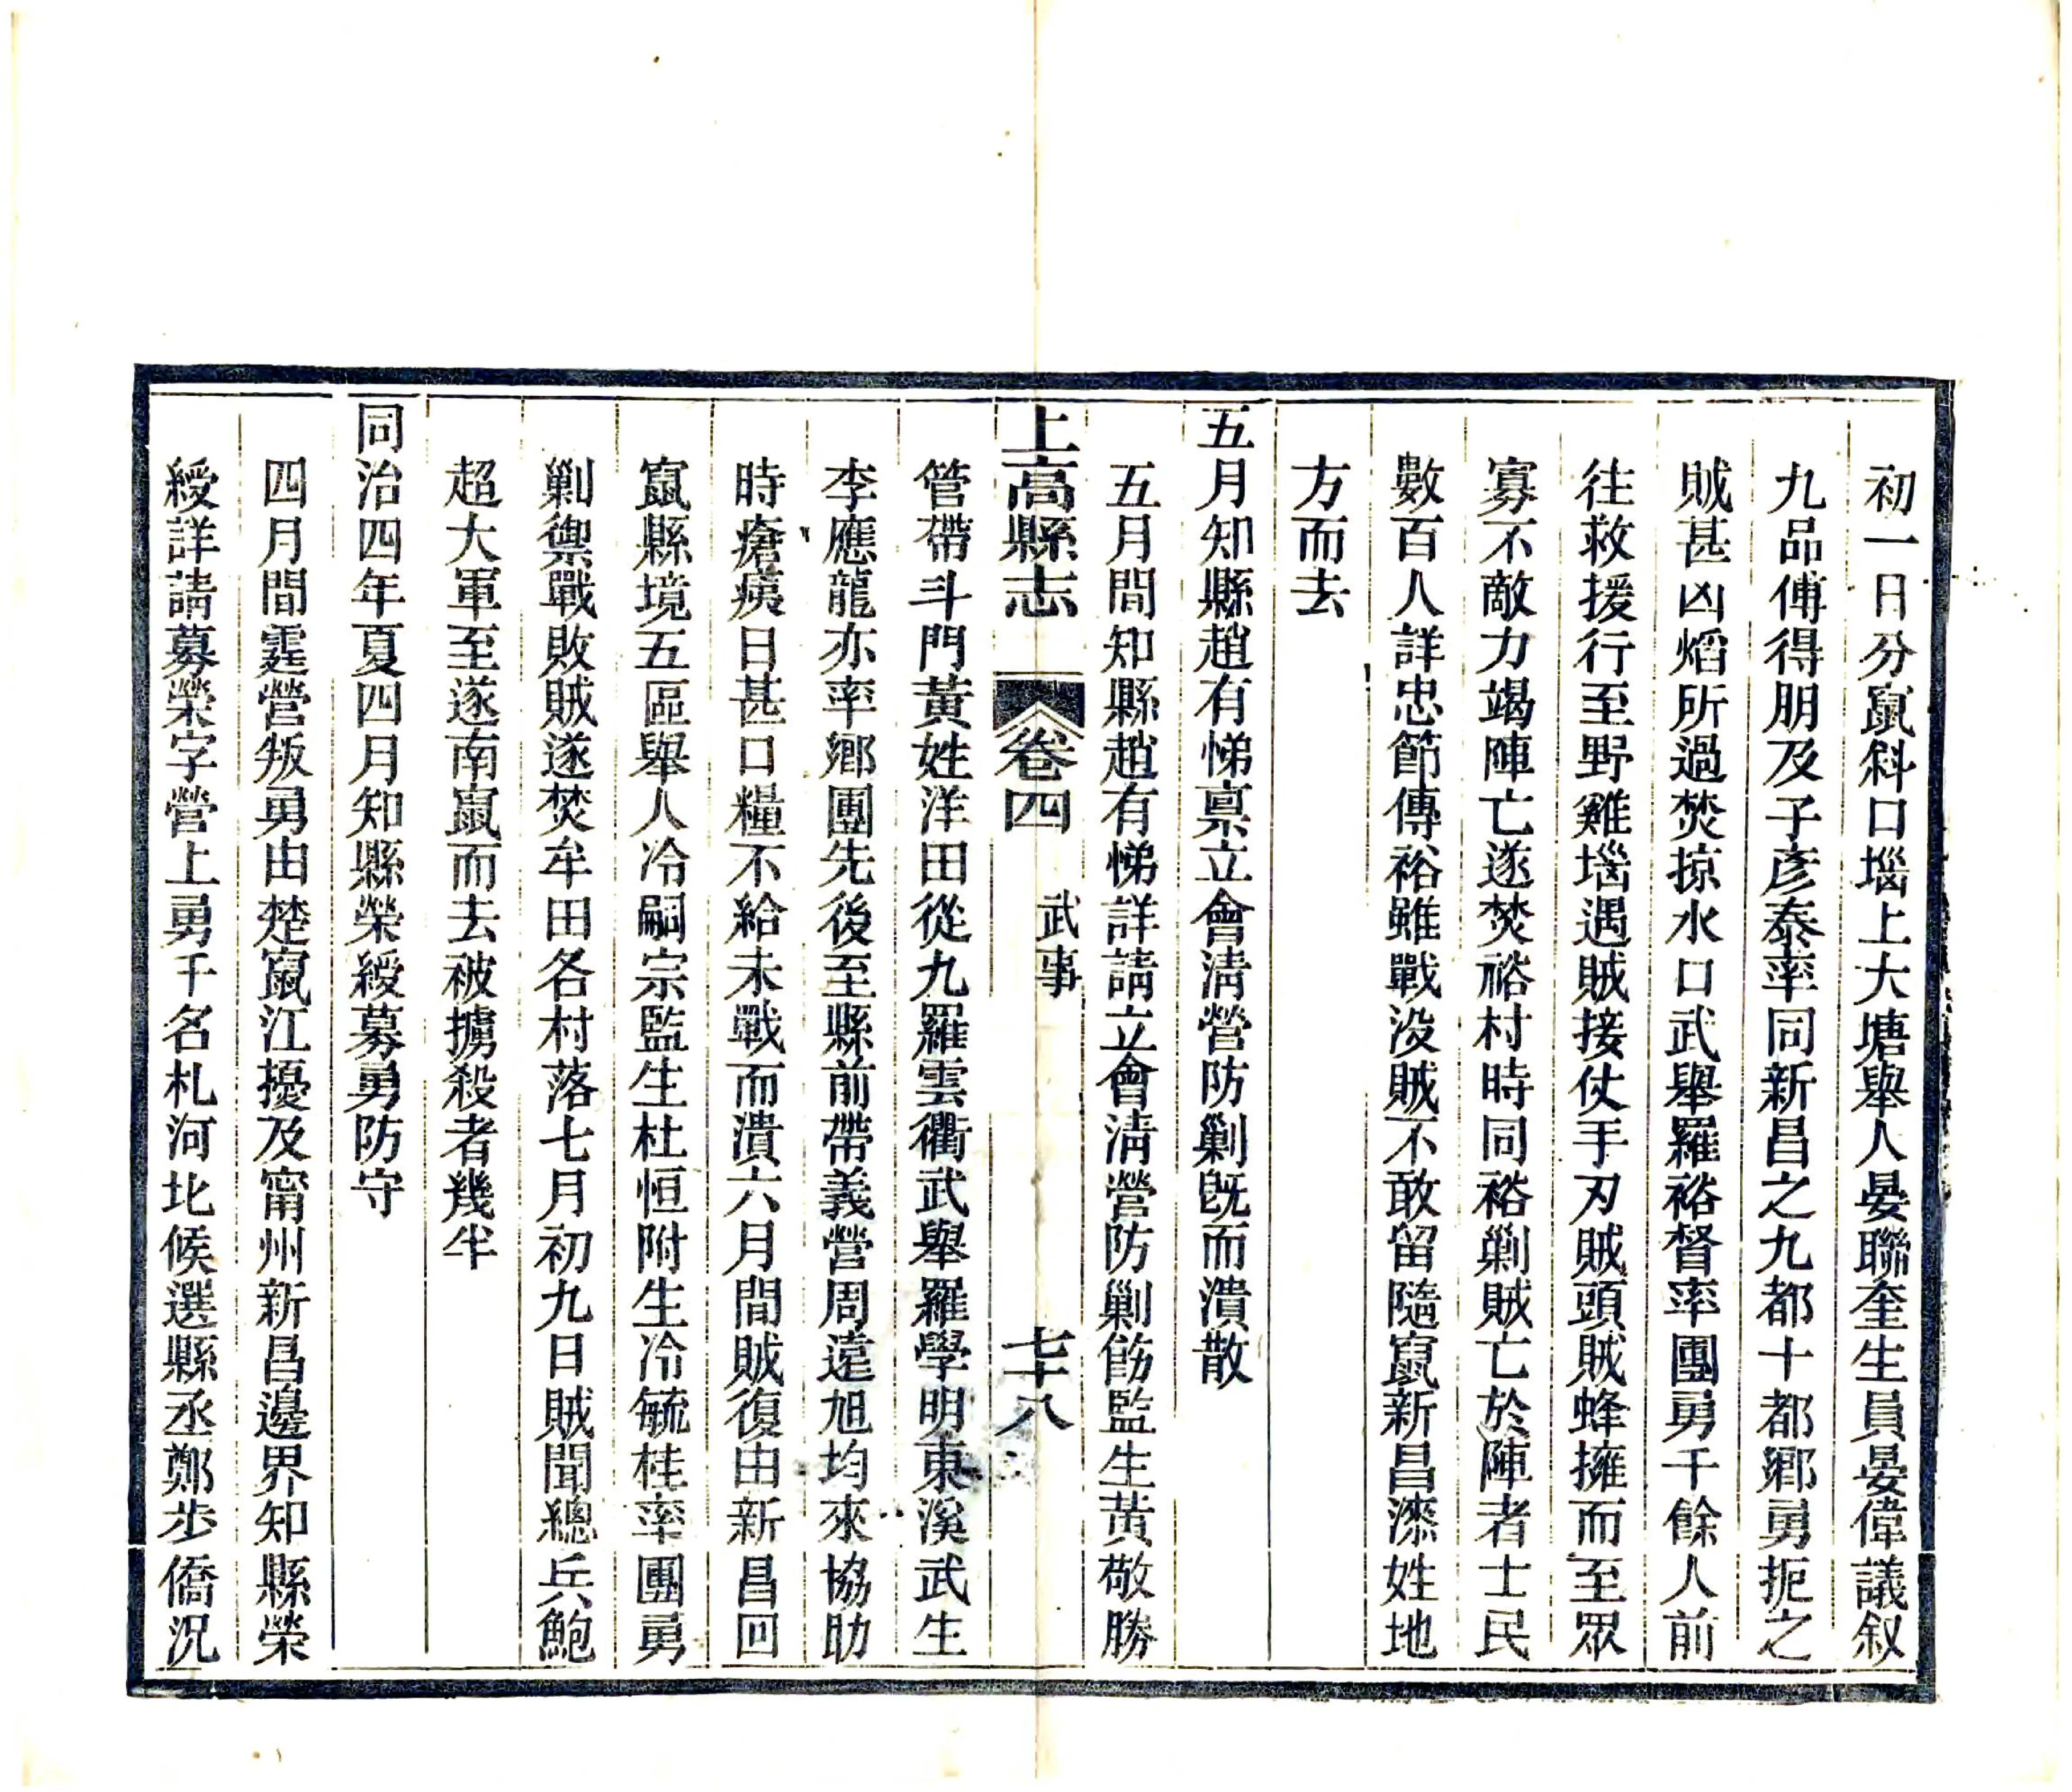 初一日分竄斜口堖上大塘舉人晏聯奎生員晏偉議叙
九品傅得朋及子彥泰率同新昌之九都十都鄉勇扼之
賊甚凶熖所過焚掠水口武舉羅裕督率團勇千餘人前
往救援行至野雞堖遇賊接仗手刃賊頭賊蜂擁而至眾
寡不敵力竭陣亡遂焚裕村時同裕剿賊亡於陣者士民
數百人詳忠節傳裕雖戰没賊不敢留隨竄新昌漆姓地
方而去
五月知縣趙有悌禀立會淸營防剿旣而潰散
五月間知縣趙有悌詳請立會淸營防剿飭監生黃敬勝
上高縣志 卷四 武事 七十八
管帶斗門黃姓洋田從九羅雲衢武舉羅學明東溪武生
李應龍亦率鄉團先後至縣前帶義營周遠旭均來協助
時瘡痍日甚口糧不給未戰而潰六月間賊復由新昌回
竄縣境五區舉人冷嗣宗監生杜恒附生冷毓桂率團勇
剿禦戰敗賊遂焚牟田各村落七月初九日賊聞總兵鮑
超大軍至遂南竄而去被擄殺者幾半
同治四年夏四月知縣榮綬募勇防守
四月間霆營叛勇由楚竄江擾及甯州新昌邊界知縣榮
綬詳請募榮字營上勇千名札河北候選縣丞鄭步僑況